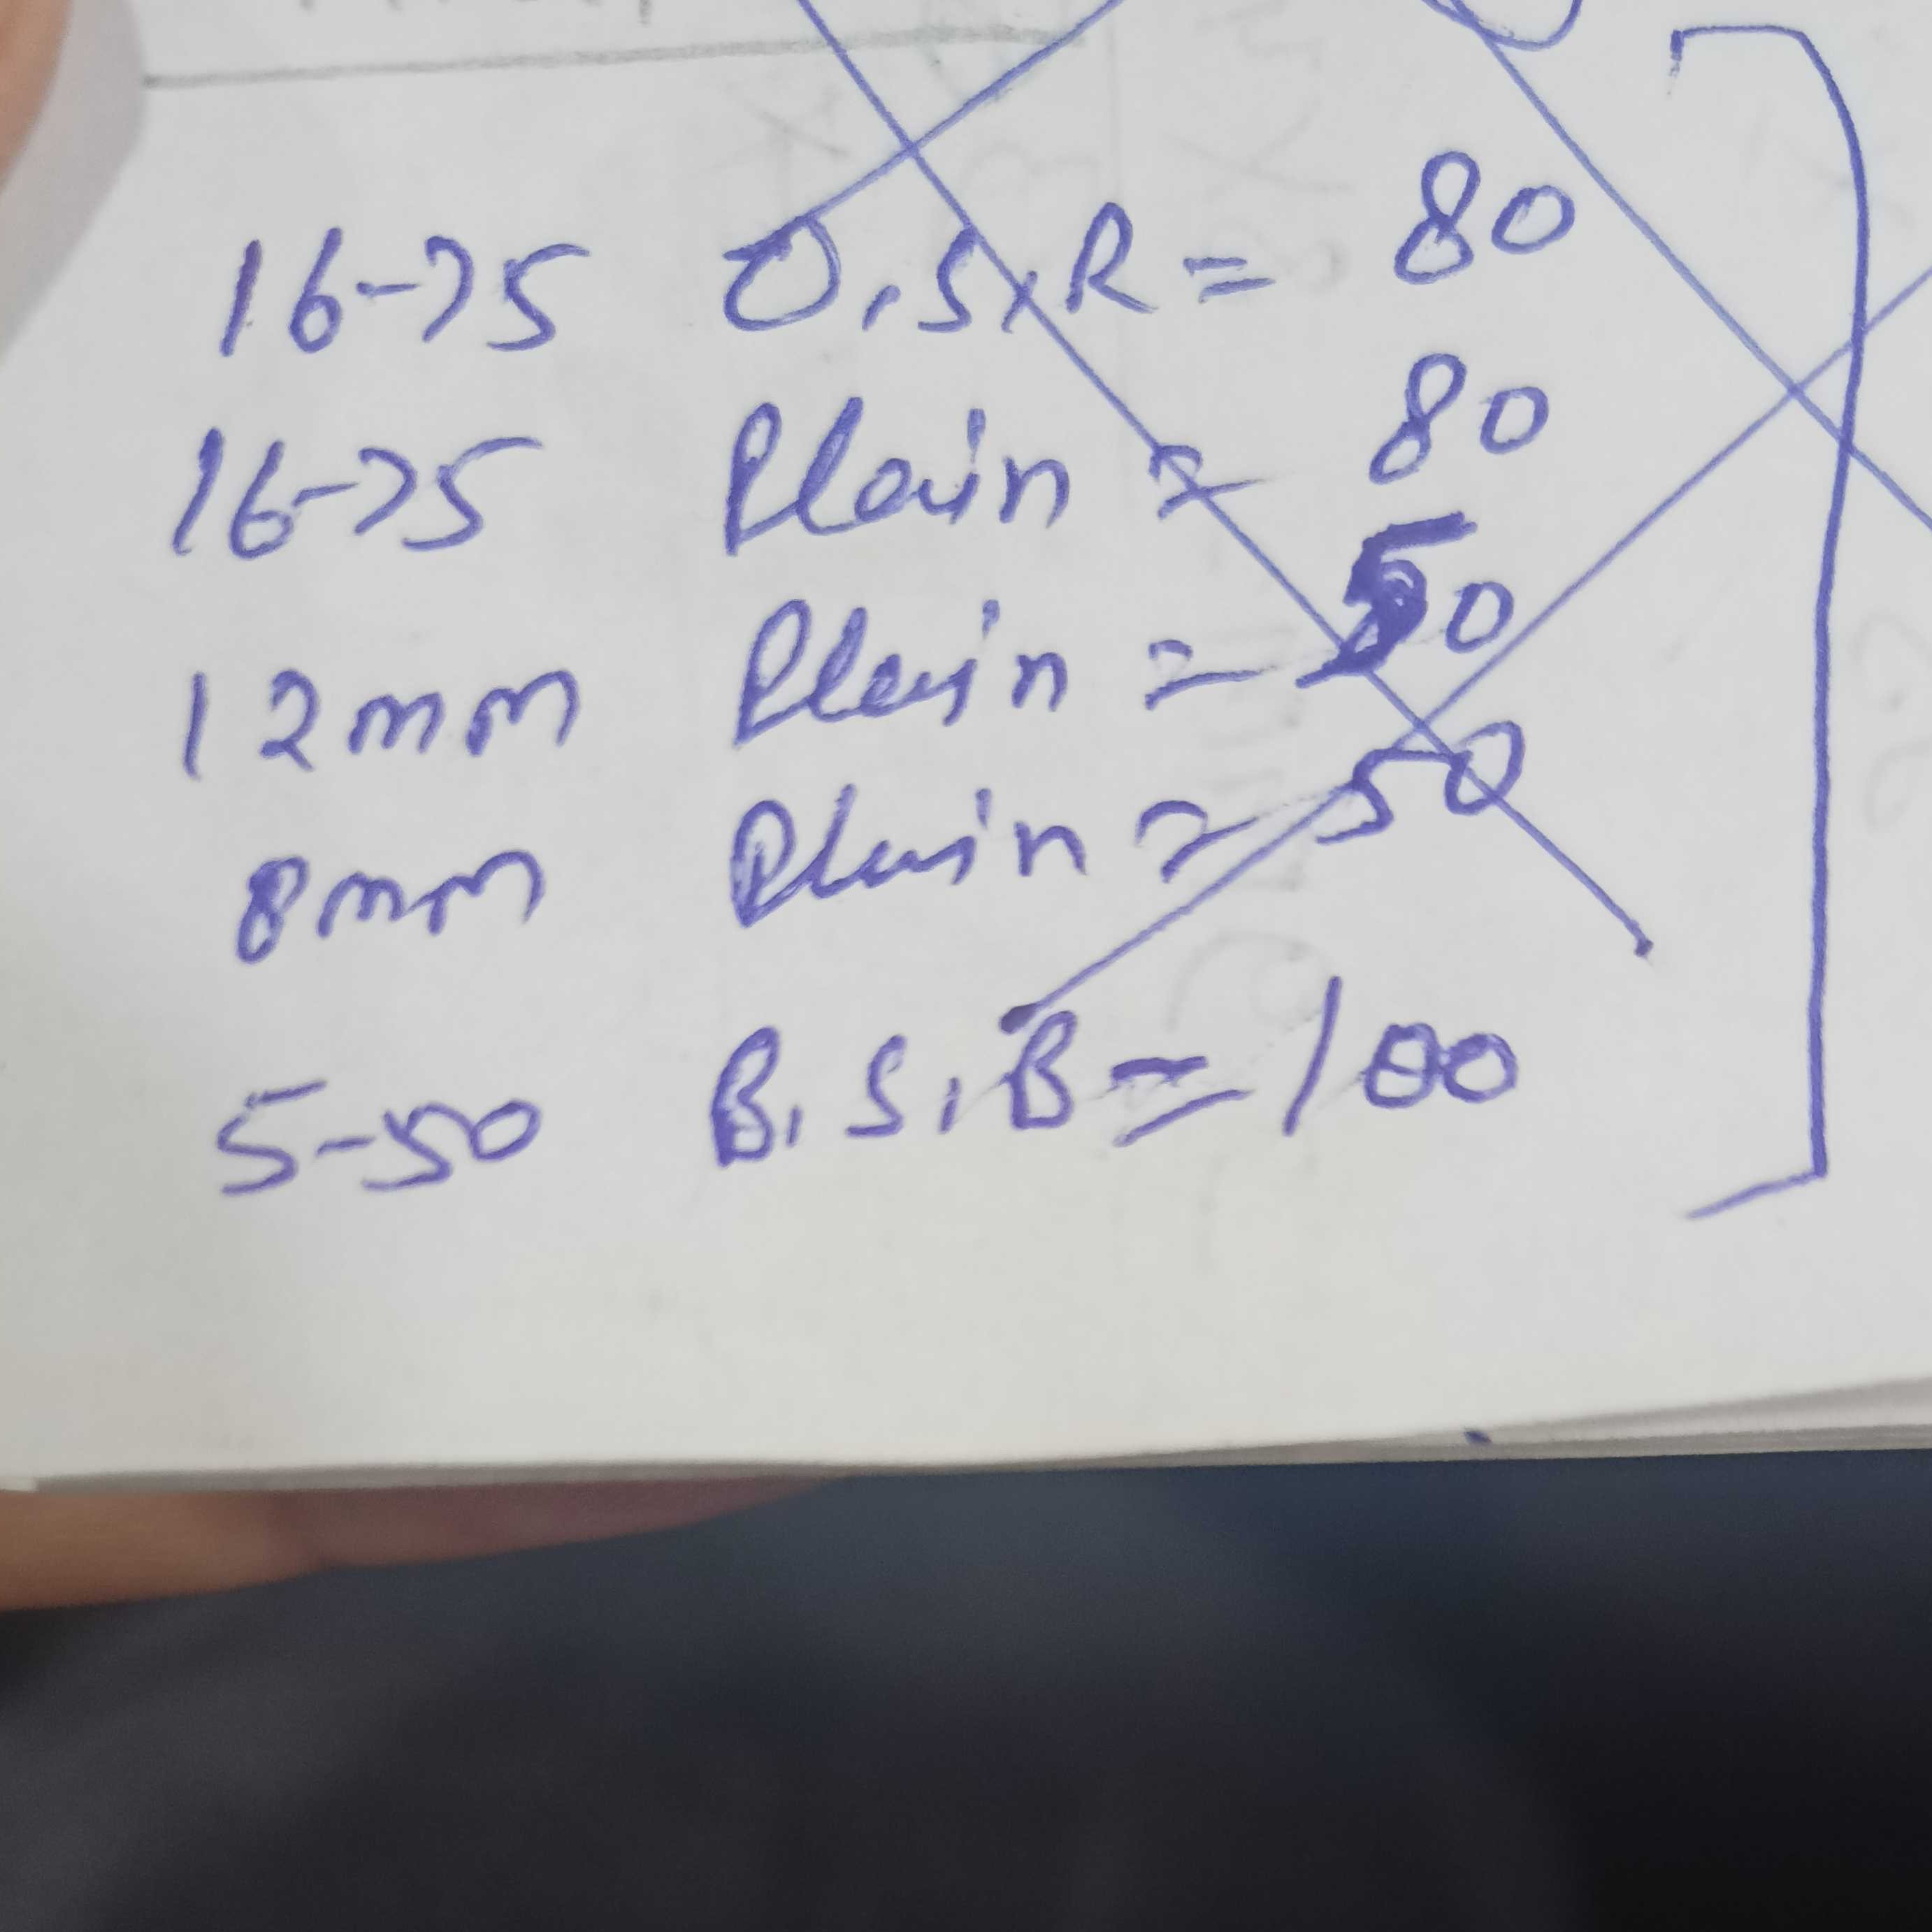 16-75 O.S.R = 80
16-75 Plain = 80
12mm Plain = 50
8mm Plain = 50
5-50 B.S.B = 100